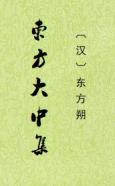 〔汉〕东方朔
東方大中集